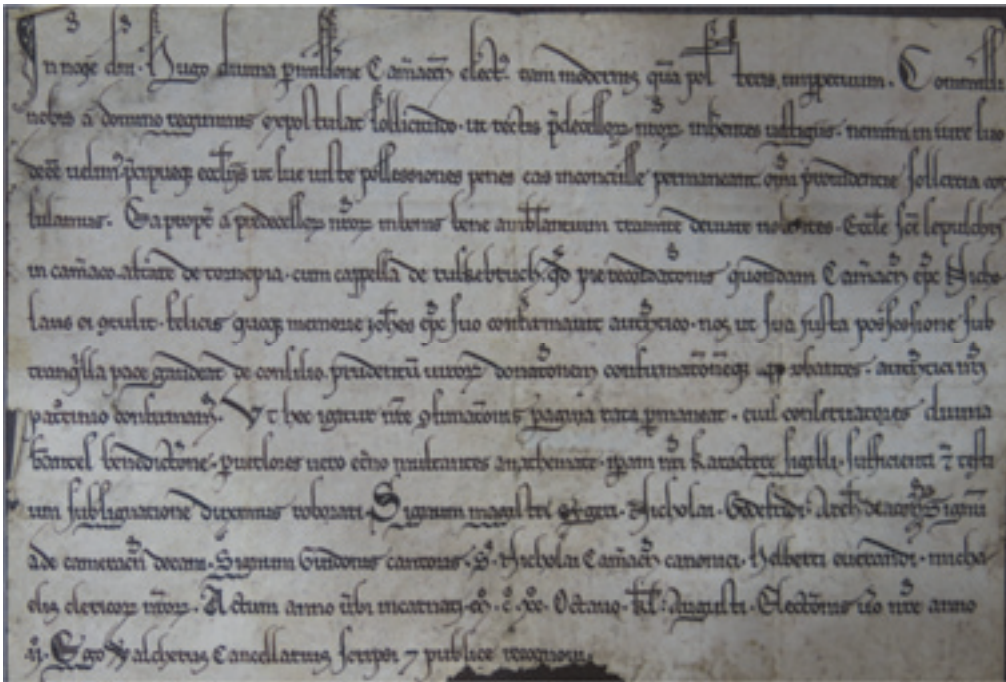 In noĩe dñi. Hugo diuina p̃missione Cam̃acẽn elect᷒. tam modernis quã pos teris imp̃petuum. Commissi
nobis a domino regiminis expostulat sollicitudo. ut rectis p̃decessoꝝ nr̃oꝝ inh̃entes uestigiis. nemini in iure suo
deẽe uelim᷒. p̃cipueq; eccl̃iis ut sue iuste possessiones penes eas inconcusse permaneant. om̃i prouidentie sollertia
bulamus. Ea propt̃ a predecessoꝝ nr̃oꝝ in bonis bene ambulantium tramite deuiare nolentes. Eccl̃e sc̃i sepulchri
in cam̃aco. altare de cum cappella de qd̃ pie recordationis quondam Cam̃acẽn ep̃c Nicho
laus ei ꝯtulit. felicis quoq; memorie joh̃es ep̃c suo confirmauit autentico. nos ut sua justa possessione sub
tranq̃lla pace gaudeat de consilio prudentũ uiroꝝ donatõnem confirmatõnẽq; autentici nr̃i
pat̃cinio confirmam᷒. Vt hec igitur nr̃e ꝯfirmatõnis pagina rata p̃maneat. eius conseruatores diuina
benedictõne. uero anathemate. ip̃am nr̃i karactere sigilli. sufficienti ⁊ testi
um subsignatione duximus roborari. Signum magistri Nicholai. Godefridi. Arch̃ Signũ
Ade cameracẽn decani. Signum Guidonis cantoris. S̃. Nicholai Cam̃acẽn canonici. micha
elis clericoꝝ nr̃oꝝ. Actum anno ũbi incarnati. ꝏ̊. c̊. xc̊. Octauo. kl̃. augusti. Electõnis ũo nr̃e anno
ij. Ego Walcherus Cancellarius scripsi ⁊ publice recognoui.